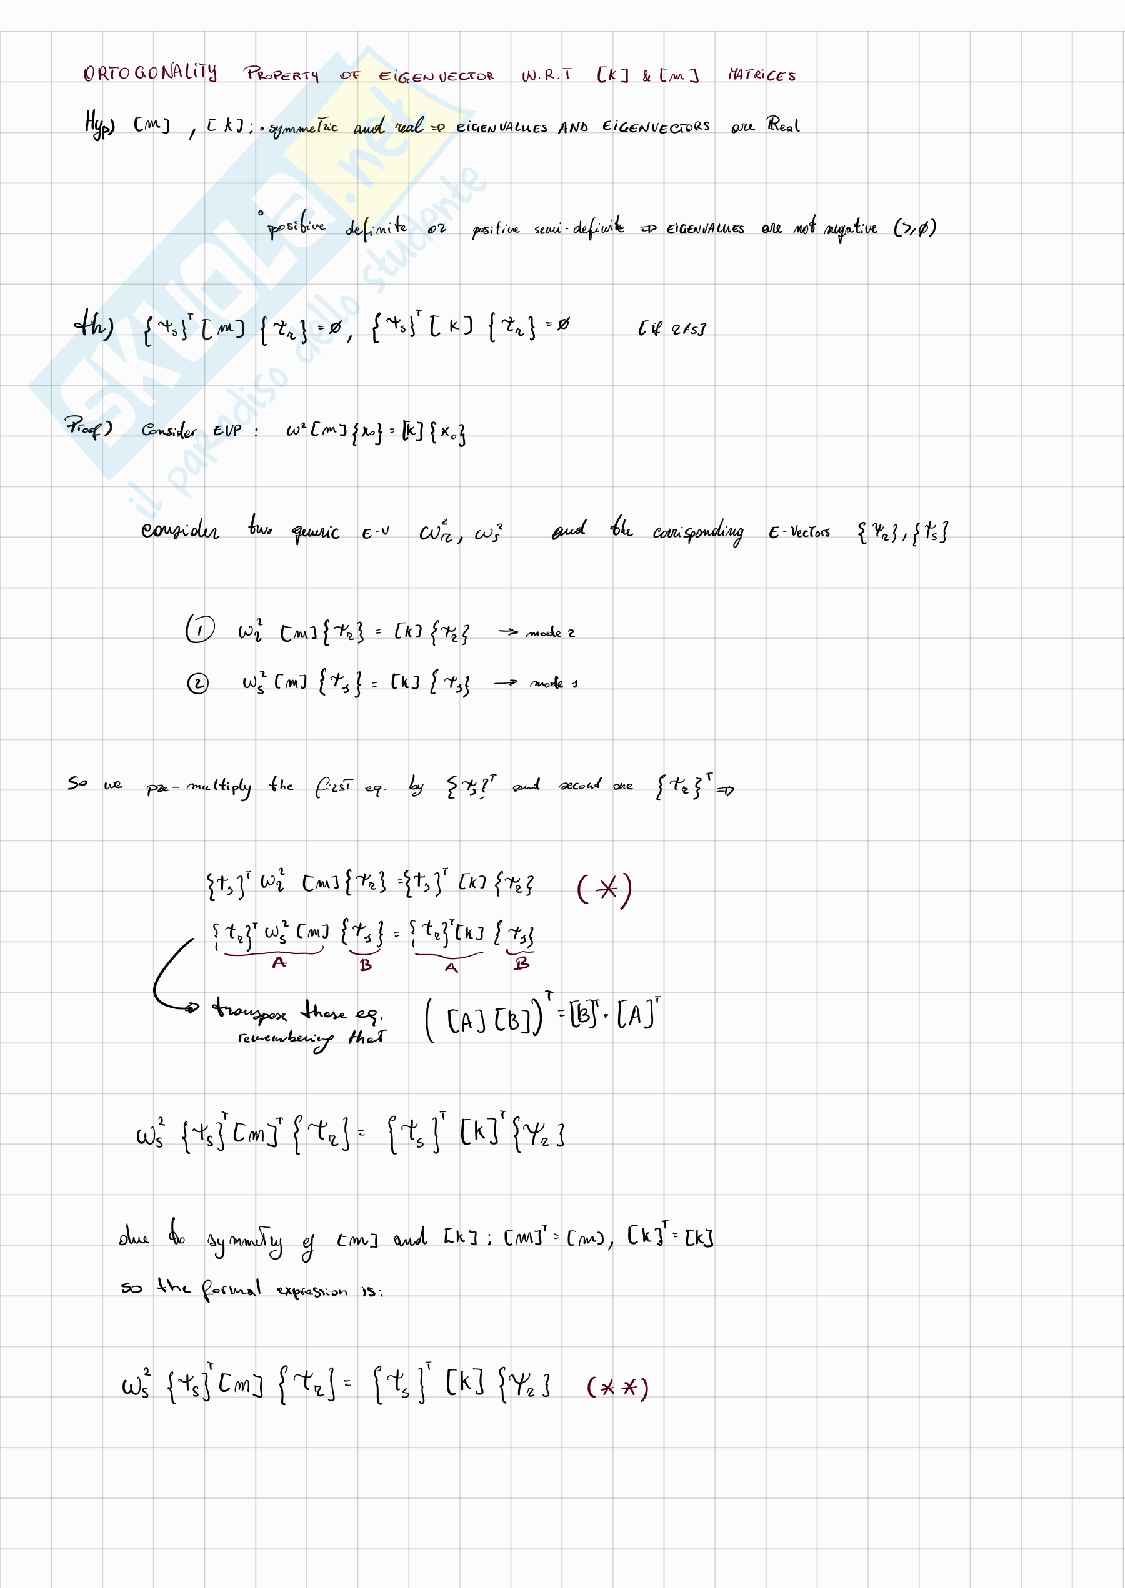 ORTOGONALITY PROPERTY OF EIGENVECTOR W.R.T [K] & [m] MATRICES
Hyp) [m] , [k]: • symmetric and real ⇒ EIGENVALUES AND EIGENVECTORS are Real
• positive definite or positive semi-definite ⇒ EIGENVALUES are not negative (≥0)
th) {ψs}ᵀ [m] {ψr} = ∅, {ψs}ᵀ [k] {ψr} = ∅ [if r≠s]
Proof) Consider EVP : ω² [m]{x₀} = [k]{x₀}
consider two generic E-V ωr², ωs² and the corrisponding E-Vectors {ψr}, {ψs}
① ωr² [m]{ψr} = [k]{ψr} → mode r
② ωs² [m]{ψs} = [k]{ψs} → mode s
So we pre-multiply the first eq. by {ψs}ᵀ and second one {ψr}ᵀ ⇒
{ψs}ᵀ ωr² [m]{ψr} = {ψs}ᵀ [k]{ψr} (*)
{ψr}ᵀ ωs² [m] {ψs} = {ψr}ᵀ [k] {ψs}
A B A B
transpose these eq. ([A][B])ᵀ = [B]ᵀ · [A]ᵀ
remembering that
ωs² {ψs}ᵀ [m]ᵀ {ψr} = {ψs}ᵀ [k]ᵀ {ψr}
due to symmetry of [m] and [k] ; [m]ᵀ = [m], [k]ᵀ = [k]
so the formal expression is:
ωs² {ψs}ᵀ [m] {ψr} = {ψs}ᵀ [k] {ψr} (**)
SKUOLA.net
il paradiso dello studente